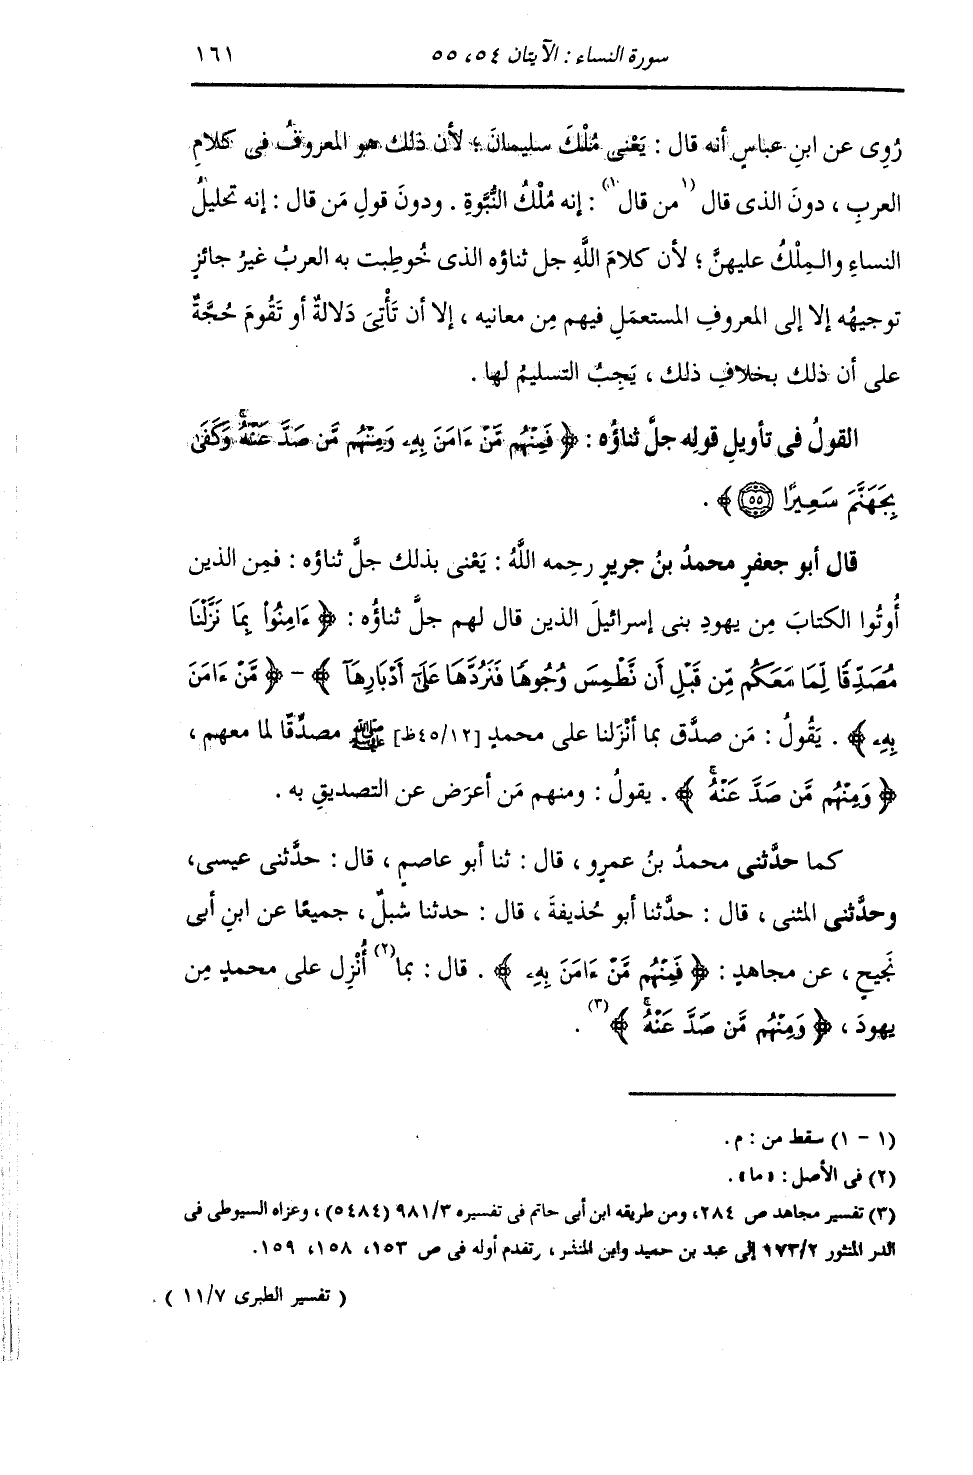 سورة النساء : الآيتان ٥٤، ٥٥ ١٦١
رُوِى عن ابنِ عباسٍ أنه قال : يَعْنى مُلْكَ سليمانَ ؛ لأن ذلك هو المعروفُ فى كلامِ
العربِ ، دونَ الذى قال (١ من قال ١) : إنه مُلْكُ النُّبُوَّةِ . ودونَ قولِ مَن قال : إنه تحليلُ
النساءِ والـمِلْكُ عليهنَّ ؛ لأن كلامَ اللَّهِ جل ثناؤه الذى خُوطِبت به العربُ غيرُ جائزٍ
توجيهُه إلا إلى المعروفِ المستعمَلِ فيهم مِن معانيه ، إلا أن تَأْتِىَ دَلالةٌ أو تَقُومَ حُجَّةٌ
على أن ذلك بخلافِ ذلك ، يَجِبُ التسليمُ لها .
القولُ فى تأويلِ قولِه جلَّ ثناؤُه : ﴿ فَمِنْهُم مَّنْ ءَامَنَ بِهِۦ وَمِنْهُم مَّن صَدَّ عَنْهُ ۚ وَكَفَىٰ
بِجَهَنَّمَ سَعِيرًا ۝٥٥ ﴾ .
قال أبو جعفرٍ محمدُ بنُ جريرٍ رحِمه اللَّهُ : يَعْنى بذلك جلَّ ثناؤه : فمِن الذين
أُوتُوا الكتابَ مِن يهودِ بنى إسرائيلَ الذين قال لهم جلَّ ثناؤُه : ﴿ ءَامِنُوا۟ بِمَا نَزَّلْنَا
مُصَدِّقًا لِّمَا مَعَكُم مِّن قَبْلِ أَن نَّطْمِسَ وُجُوهًا فَنَرُدَّهَا عَلَىٰٓ أَدْبَارِهَآ ﴾ - ﴿ مَّنْ ءَامَنَ
بِهِۦ ﴾ . يَقُولُ : مَن صدَّق بما أنْزَلنا على محمدٍ [٤٥/١٢ظ] ﷺ مصدِّقًا لما معهم ،
﴿ وَمِنْهُم مَّن صَدَّ عَنْهُ ۚ ﴾ . يقولُ : ومنهم مَن أعرَض عن التصديقِ به .
كما حدَّثنى محمدُ بنُ عمرٍو ، قال : ثنا أبو عاصمٍ ، قال : حدَّثنى عيسى،
وحدَّثنى المثنى ، قال : حدَّثنا أبو حُذيفةَ ، قال : حدثنا شبلٌ ، جميعًا عن ابنِ أبى
نَجِيحٍ ، عن مجاهدٍ : ﴿ فَمِنْهُم مَّنْ ءَامَنَ بِهِۦ ﴾ . قال : بما(٢) أُنْزِل على محمدٍ مِن
يهودَ ، ﴿ وَمِنْهُم مَّن صَدَّ عَنْهُ ۚ ﴾(٣) .
(١ - ١) سقط من : م .
(٢) فى الأصل : «ما» .
(٣) تفسير مجاهد ص ٢٨٤، ومن طريقه ابن أبى حاتم فى تفسيره ٩٨١/٣ (٥٤٨٤) ، وعزاه السيوطى فى
الدر المنثور ١٧٣/٢ إلى عبد بن حميد وابن المنذر ، وتقدم أوله فى ص ١٥٣، ١٥٨، ١٥٩.
( تفسير الطبرى ١١/٧ )